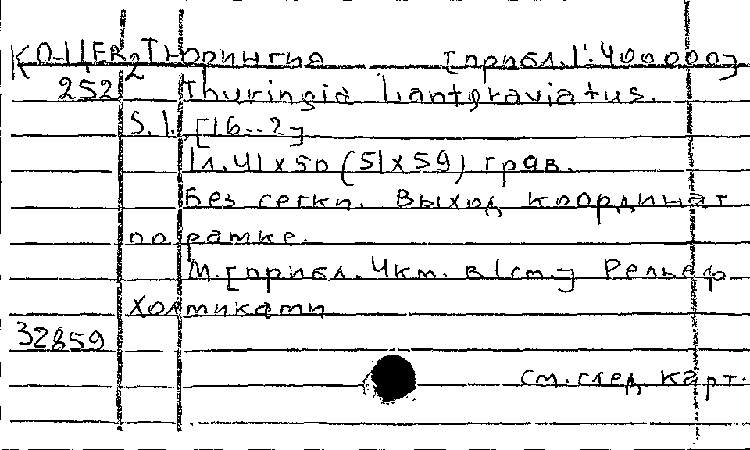 КО-ЦЕR2 Тюрингия [прибл. 1:400000]
252 Thuringia Lantgraviatus.
S.l. [16..?]
1л. 41х50 (51х59) грав.
Без сетки. Выход координат
по рамке.
М. [прибл. 4км. в 1см.] Рельеф
холмиками
32859
См. след. карт.